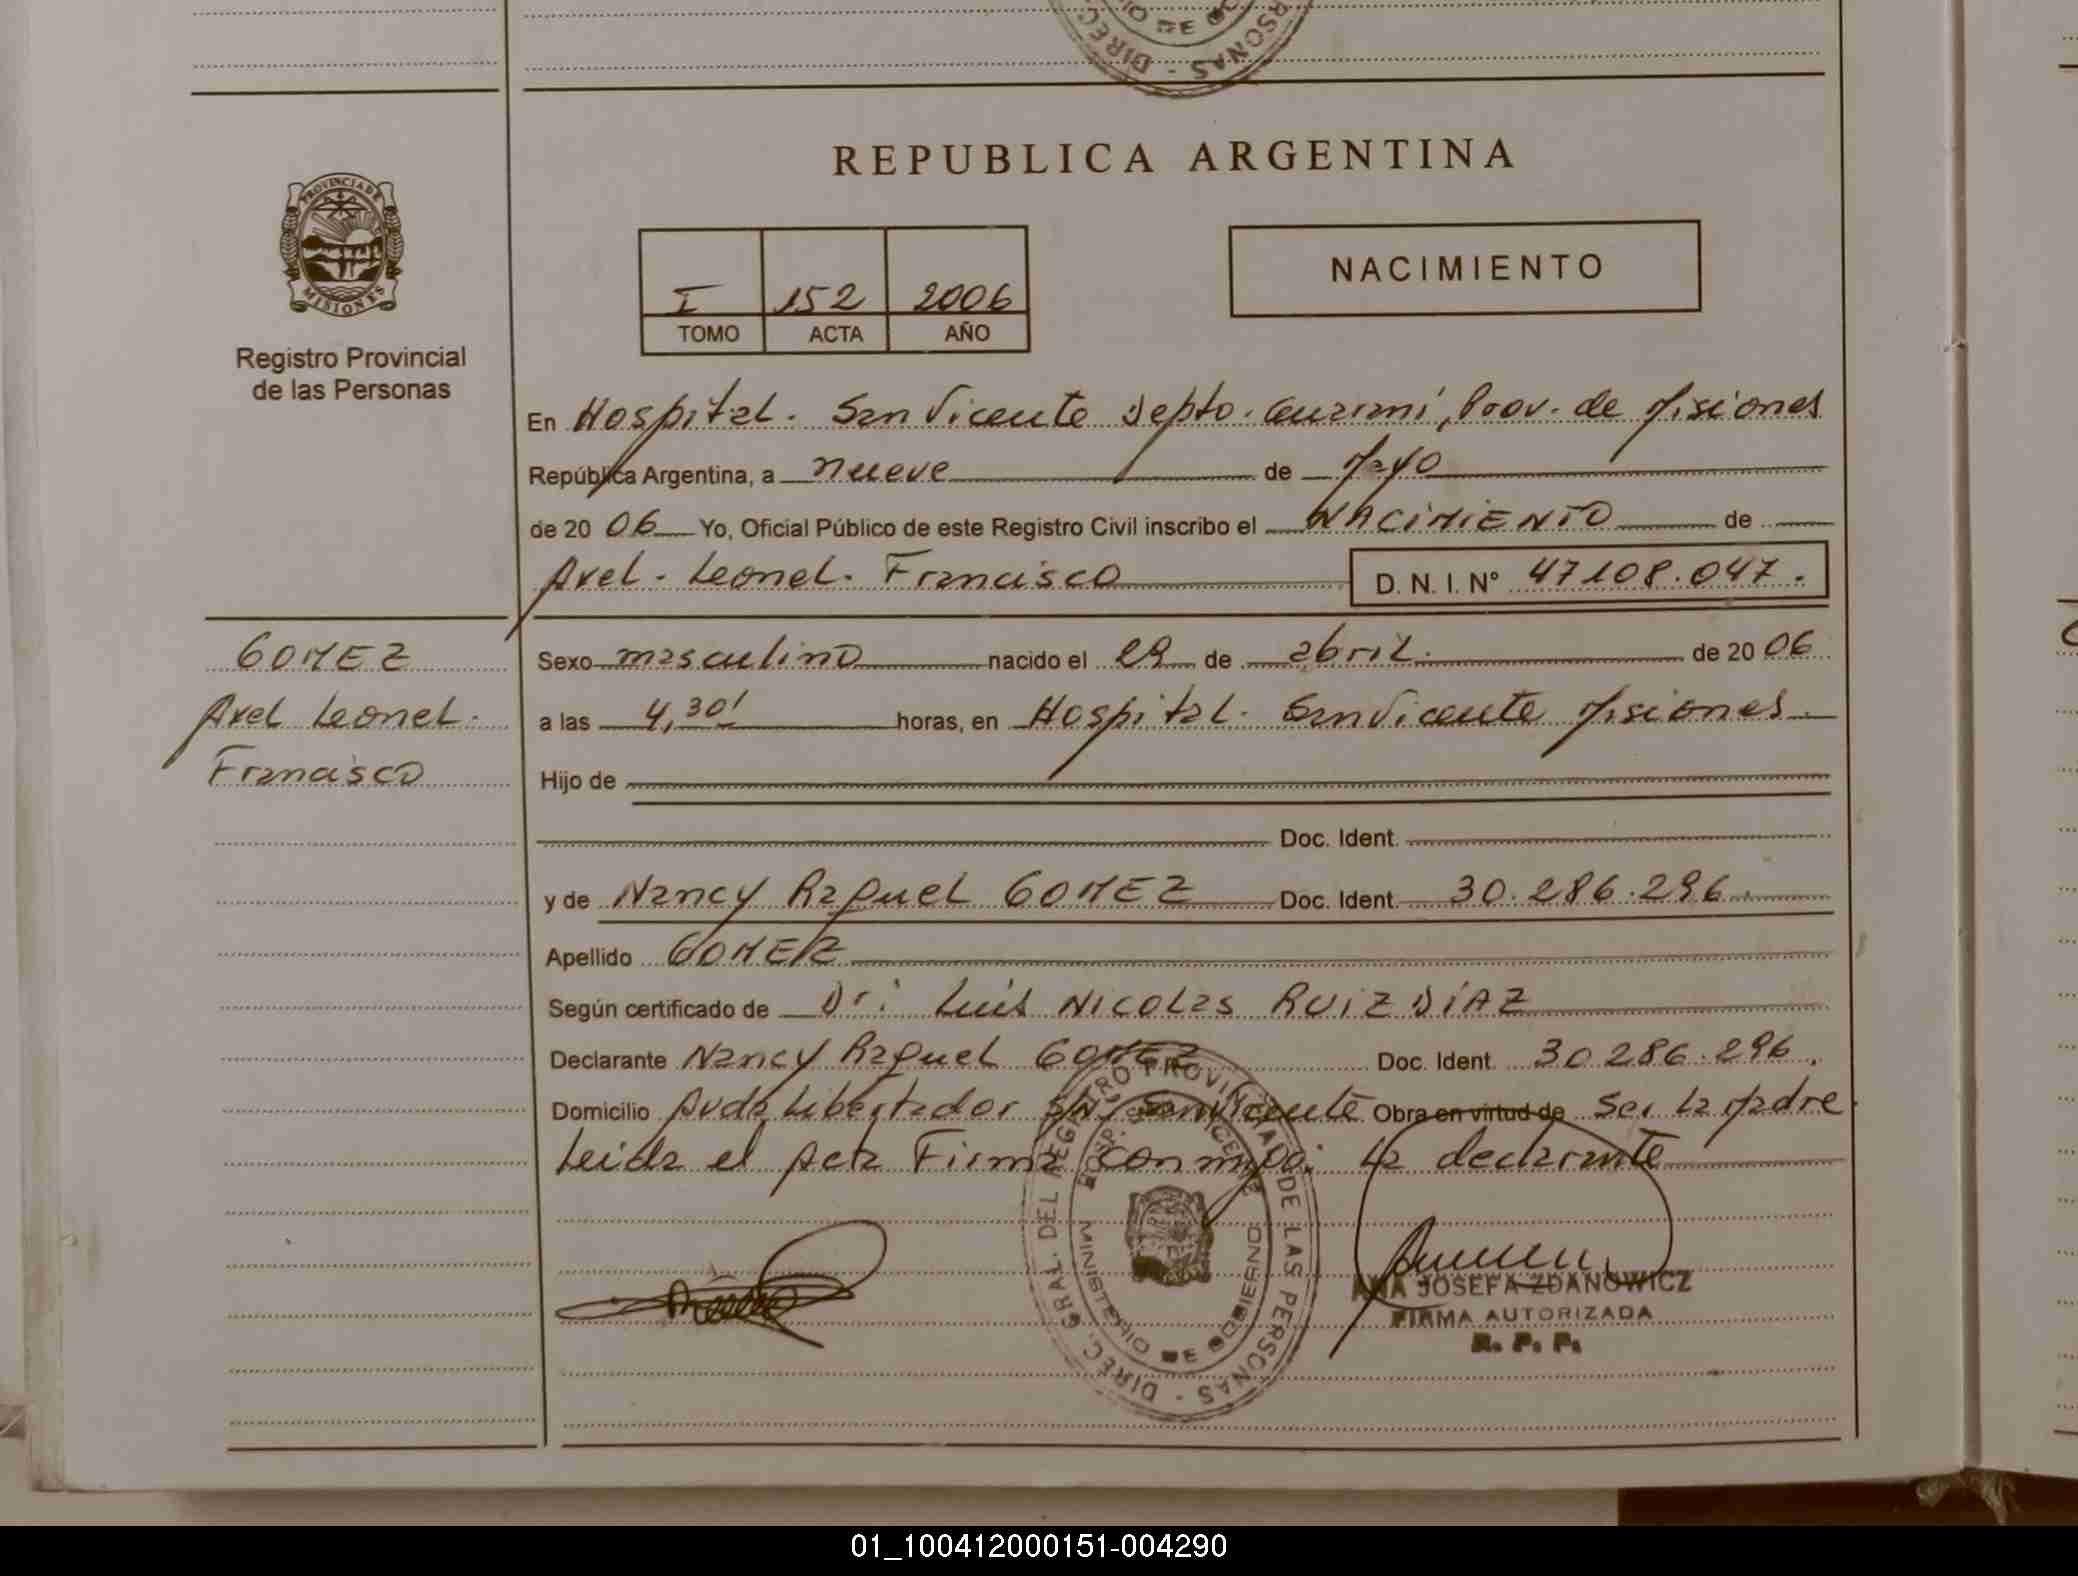 IO DE GO
DIREC
PERSONAS -
REPUBLICA ARGENTINA
PROVINCIA DE
MISIONES
Registro Provincial
de las Personas
NACIMIENTO
I 152 2006
TOMO ACTA AÑO
En Hospital. San Vicente Depto. Guaraní, Prov. de Misiones
República Argentina, a nueve de Mayo
de 20 06 Yo, Oficial Público de este Registro Civil inscribo el NACIMIENTO de
Axel. Leonel. Francisco D. N. I. N° 47108.047.
GOMEZ
Axel Leonel.
Francisco
Sexo masculino nacido el 29 de abril. de 20 06
a las 4,30' horas, en Hospital. San Vicente Misiones
Hijo de
Doc. Ident.
y de Nancy Raquel GOMEZ Doc. Ident. 30.286.296.
Apellido GOMEZ
Según certificado de Dr: Luis NICOLAS RUIZ DÍAZ
Declarante Nancy Raquel GOMEZ Doc. Ident. 30 286.296.
Domicilio Avda Libertador S/N, San Vicente Obra en virtud de Ser La Madre
Leida el Acta Firma conmigo: La declarante
DIREC. GRAL. DEL REGISTRO PROVINCIAL DE LAS PERSONAS -
MINISTERIO DE GOBIERNO
ANA JOSEFA ZDANOWICZ
FIRMA AUTORIZADA
R. P. P.
01_100412000151-004290